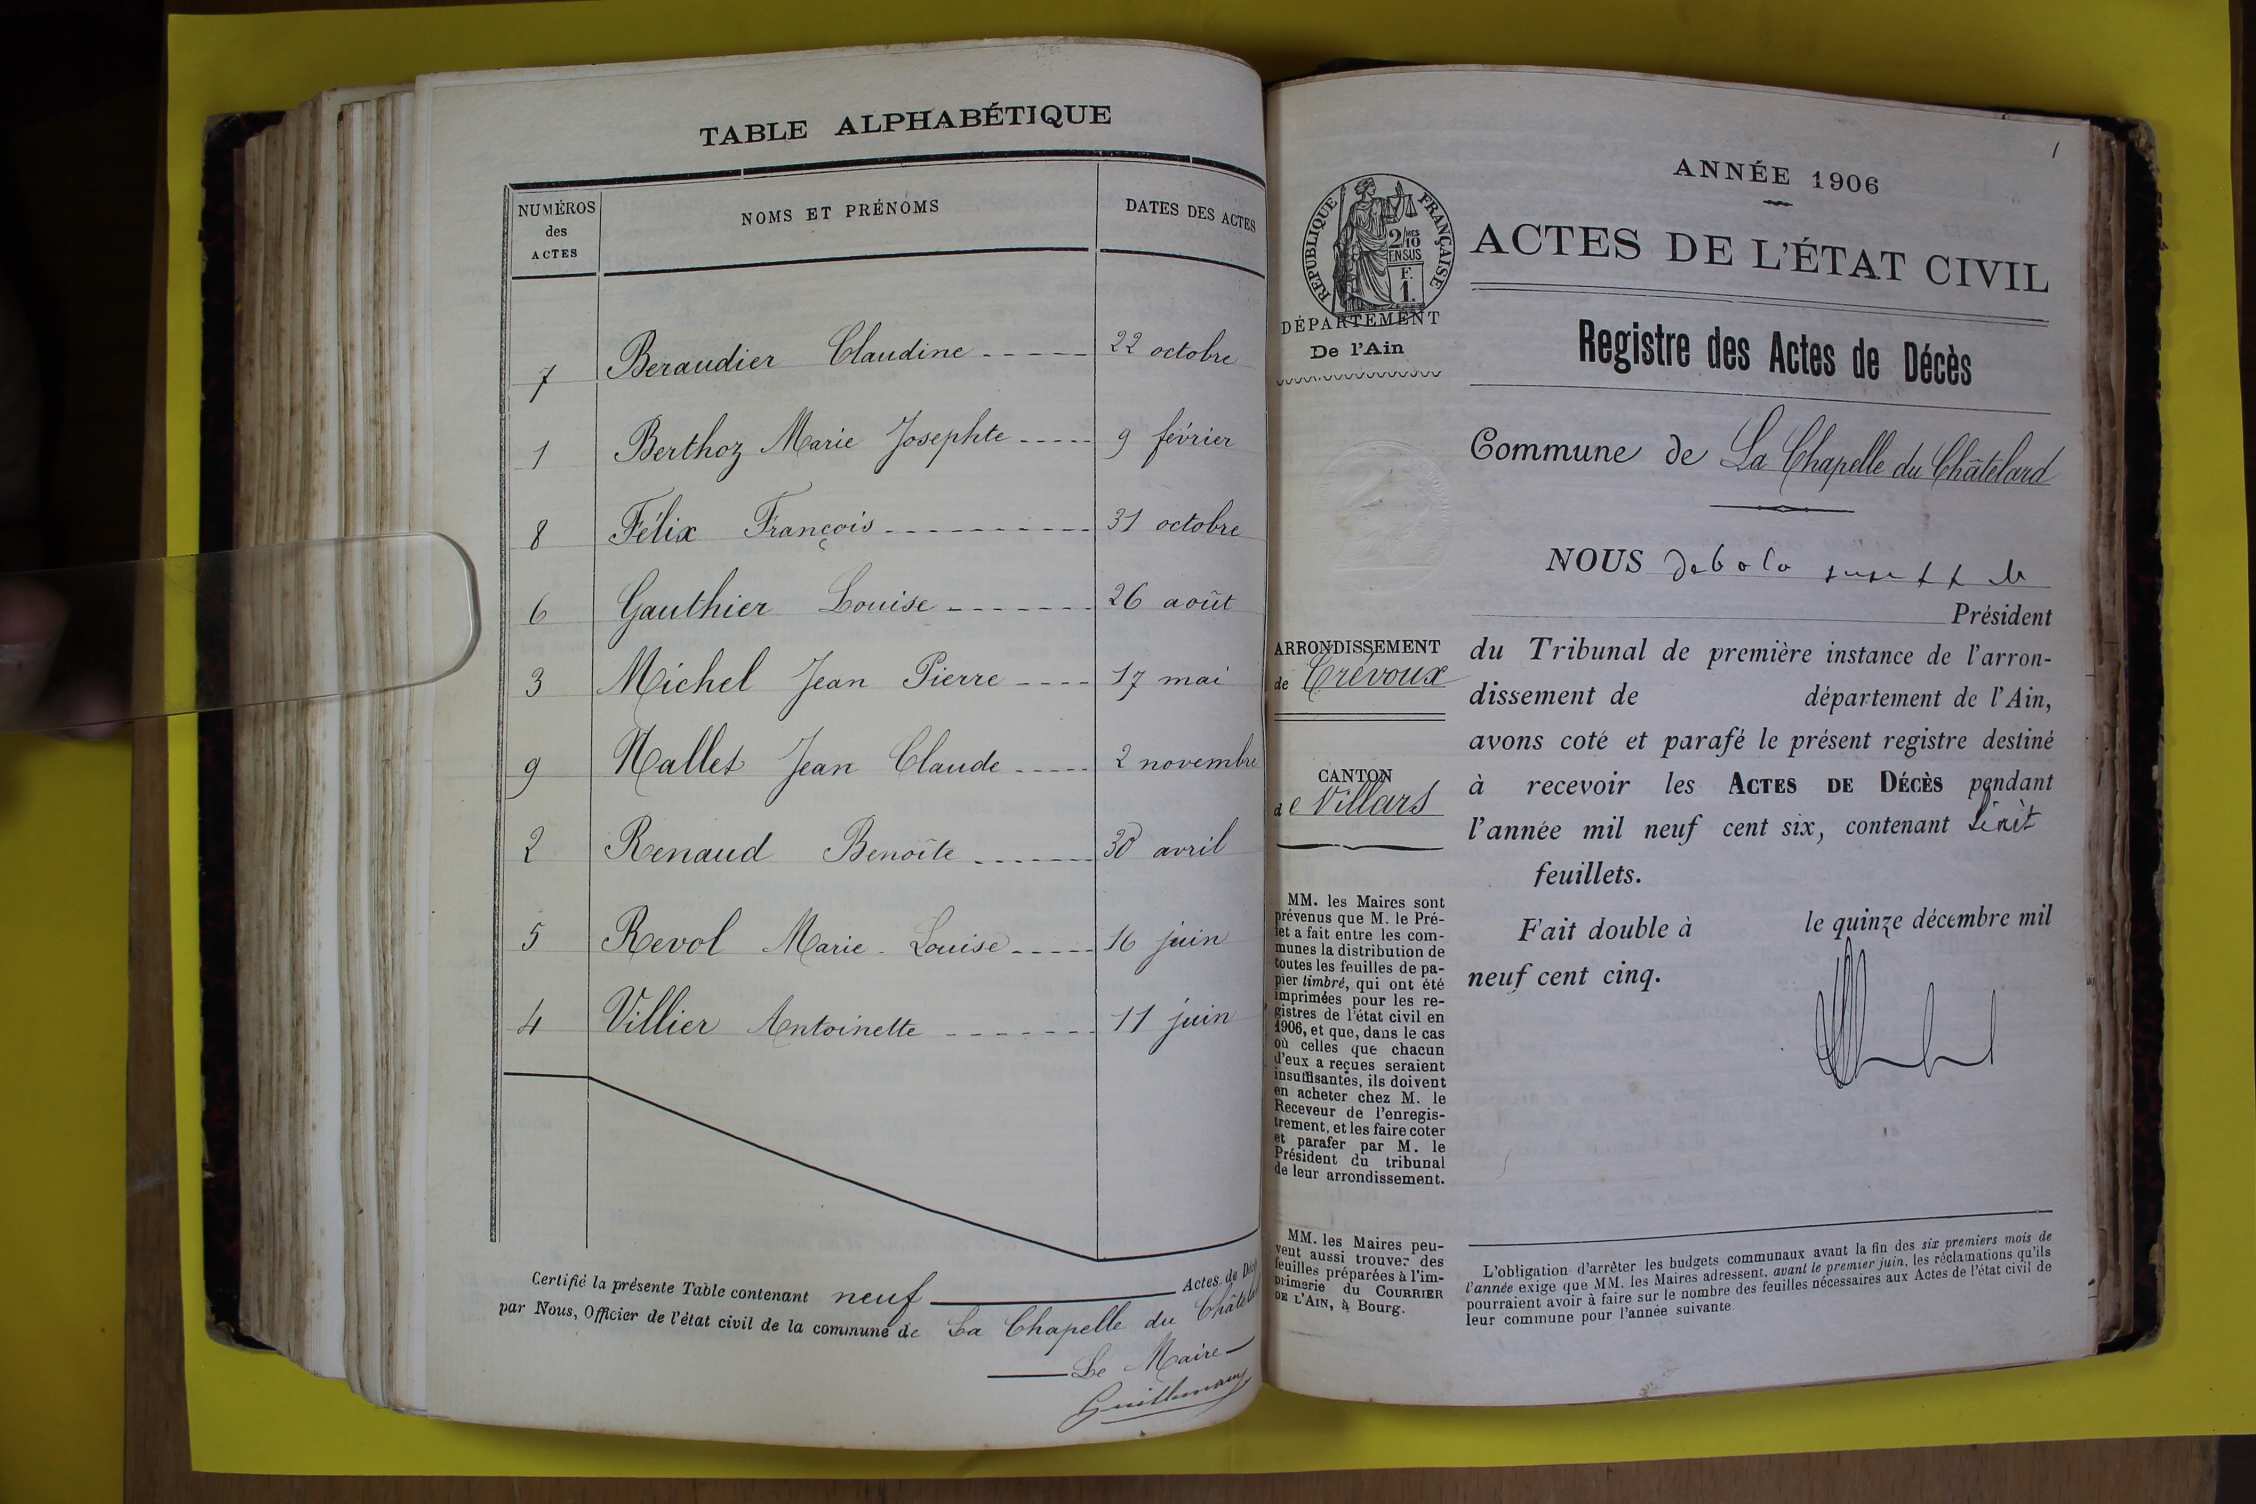 TABLE ALPHABÉTIQUE
NUMÉROS
des
ACTES
NOMS ET PRÉNOMS
DATES DES ACTES
7 Beraudier Claudine 22 octobre
1 Berthoz Marie Josephte 9 février
8 Félix François 31 octobre
6 Gauthier Louise 26 août
3 Michel Jean Pierre 17 mai
9 Nallet Jean Claude 2 novembre
2 Renaud Benoîte 30 avril
5 Revol Marie-Louise 16 juin
4 Villier Antoinette 11 juin
Certifié la présente Table contenant neuf Actes de Décè
par Nous, Officier de l'état civil de la commune de La Chapelle du Châtel
Le Maire
1
ANNÉE 1906
ACTES DE L'ÉTAT CIVIL
Registre des Actes de Décès
Commune de La Chapelle du Châtelard
NOUS
Président
du Tribunal de première instance de l'arron-
dissement de département de l'Ain,
avons coté et parafé le présent registre destiné
à recevoir les ACTES DE DÉCÈS pendant
l'année mil neuf cent six, contenant
feuillets.
Fait double à le quinze décembre mil
neuf cent cinq.
L'obligation d'arrêter les budgets communaux avant la fin des six premiers mois de
l'année exige que MM. les Maires adressent, avant le premier juin, les réclamations qu'ils
pourraient avoir à faire sur le nombre des feuilles nécessaires aux Actes de l'état civil de
leur commune pour l'année suivante.
RÉPUBLIQUE FRANÇAISE
2/10 MES
EN SUS
F.
1.
DÉPARTEMENT
De l'Ain
ARRONDISSEMENT
de Trévoux
CANTON
de Villars
MM. les Maires sont
prévenus que M. le Pré-
fet a fait entre les com-
munes la distribution de
toutes les feuilles de pa-
pier timbré, qui ont été
imprimées pour les re-
gistres de l'état civil en
1906, et que, dans le cas
où celles que chacun
d'eux a reçues seraient
insuffisantes, ils doivent
en acheter chez M. le
Receveur de l'enregis-
trement, et les faire coter
et parafer par M. le
Président du tribunal
de leur arrondissement.
MM. les Maires peu-
vent aussi trouver des
feuilles préparées à l'im-
primerie du COURRIER
DE L'AIN, à Bourg.